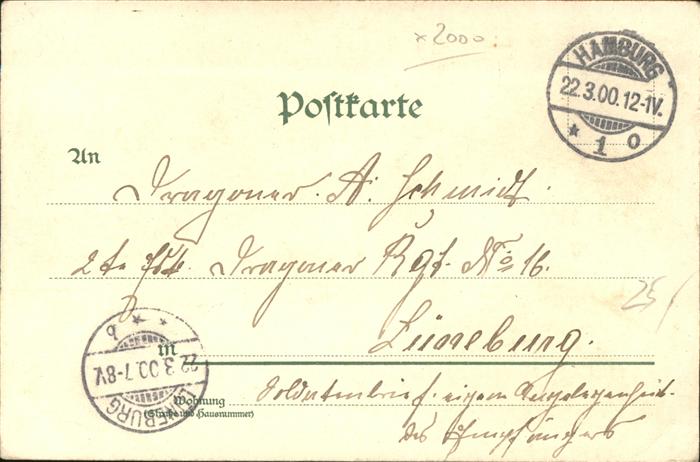 x2000
HAMBURG
22.3.00.12-1V.
* 1 o
Postkarte
An
Dragoner A. Schmidt.
2te Esk. Dragoner Rgt. No 16.
25
in Lüneburg.
LÜNEBURG
22.3.00.7-8V.
* * b
Wohnung
(Straße und Hausnummer)
Soldatenbrief. eigene Angelegenheit
des Empfängers